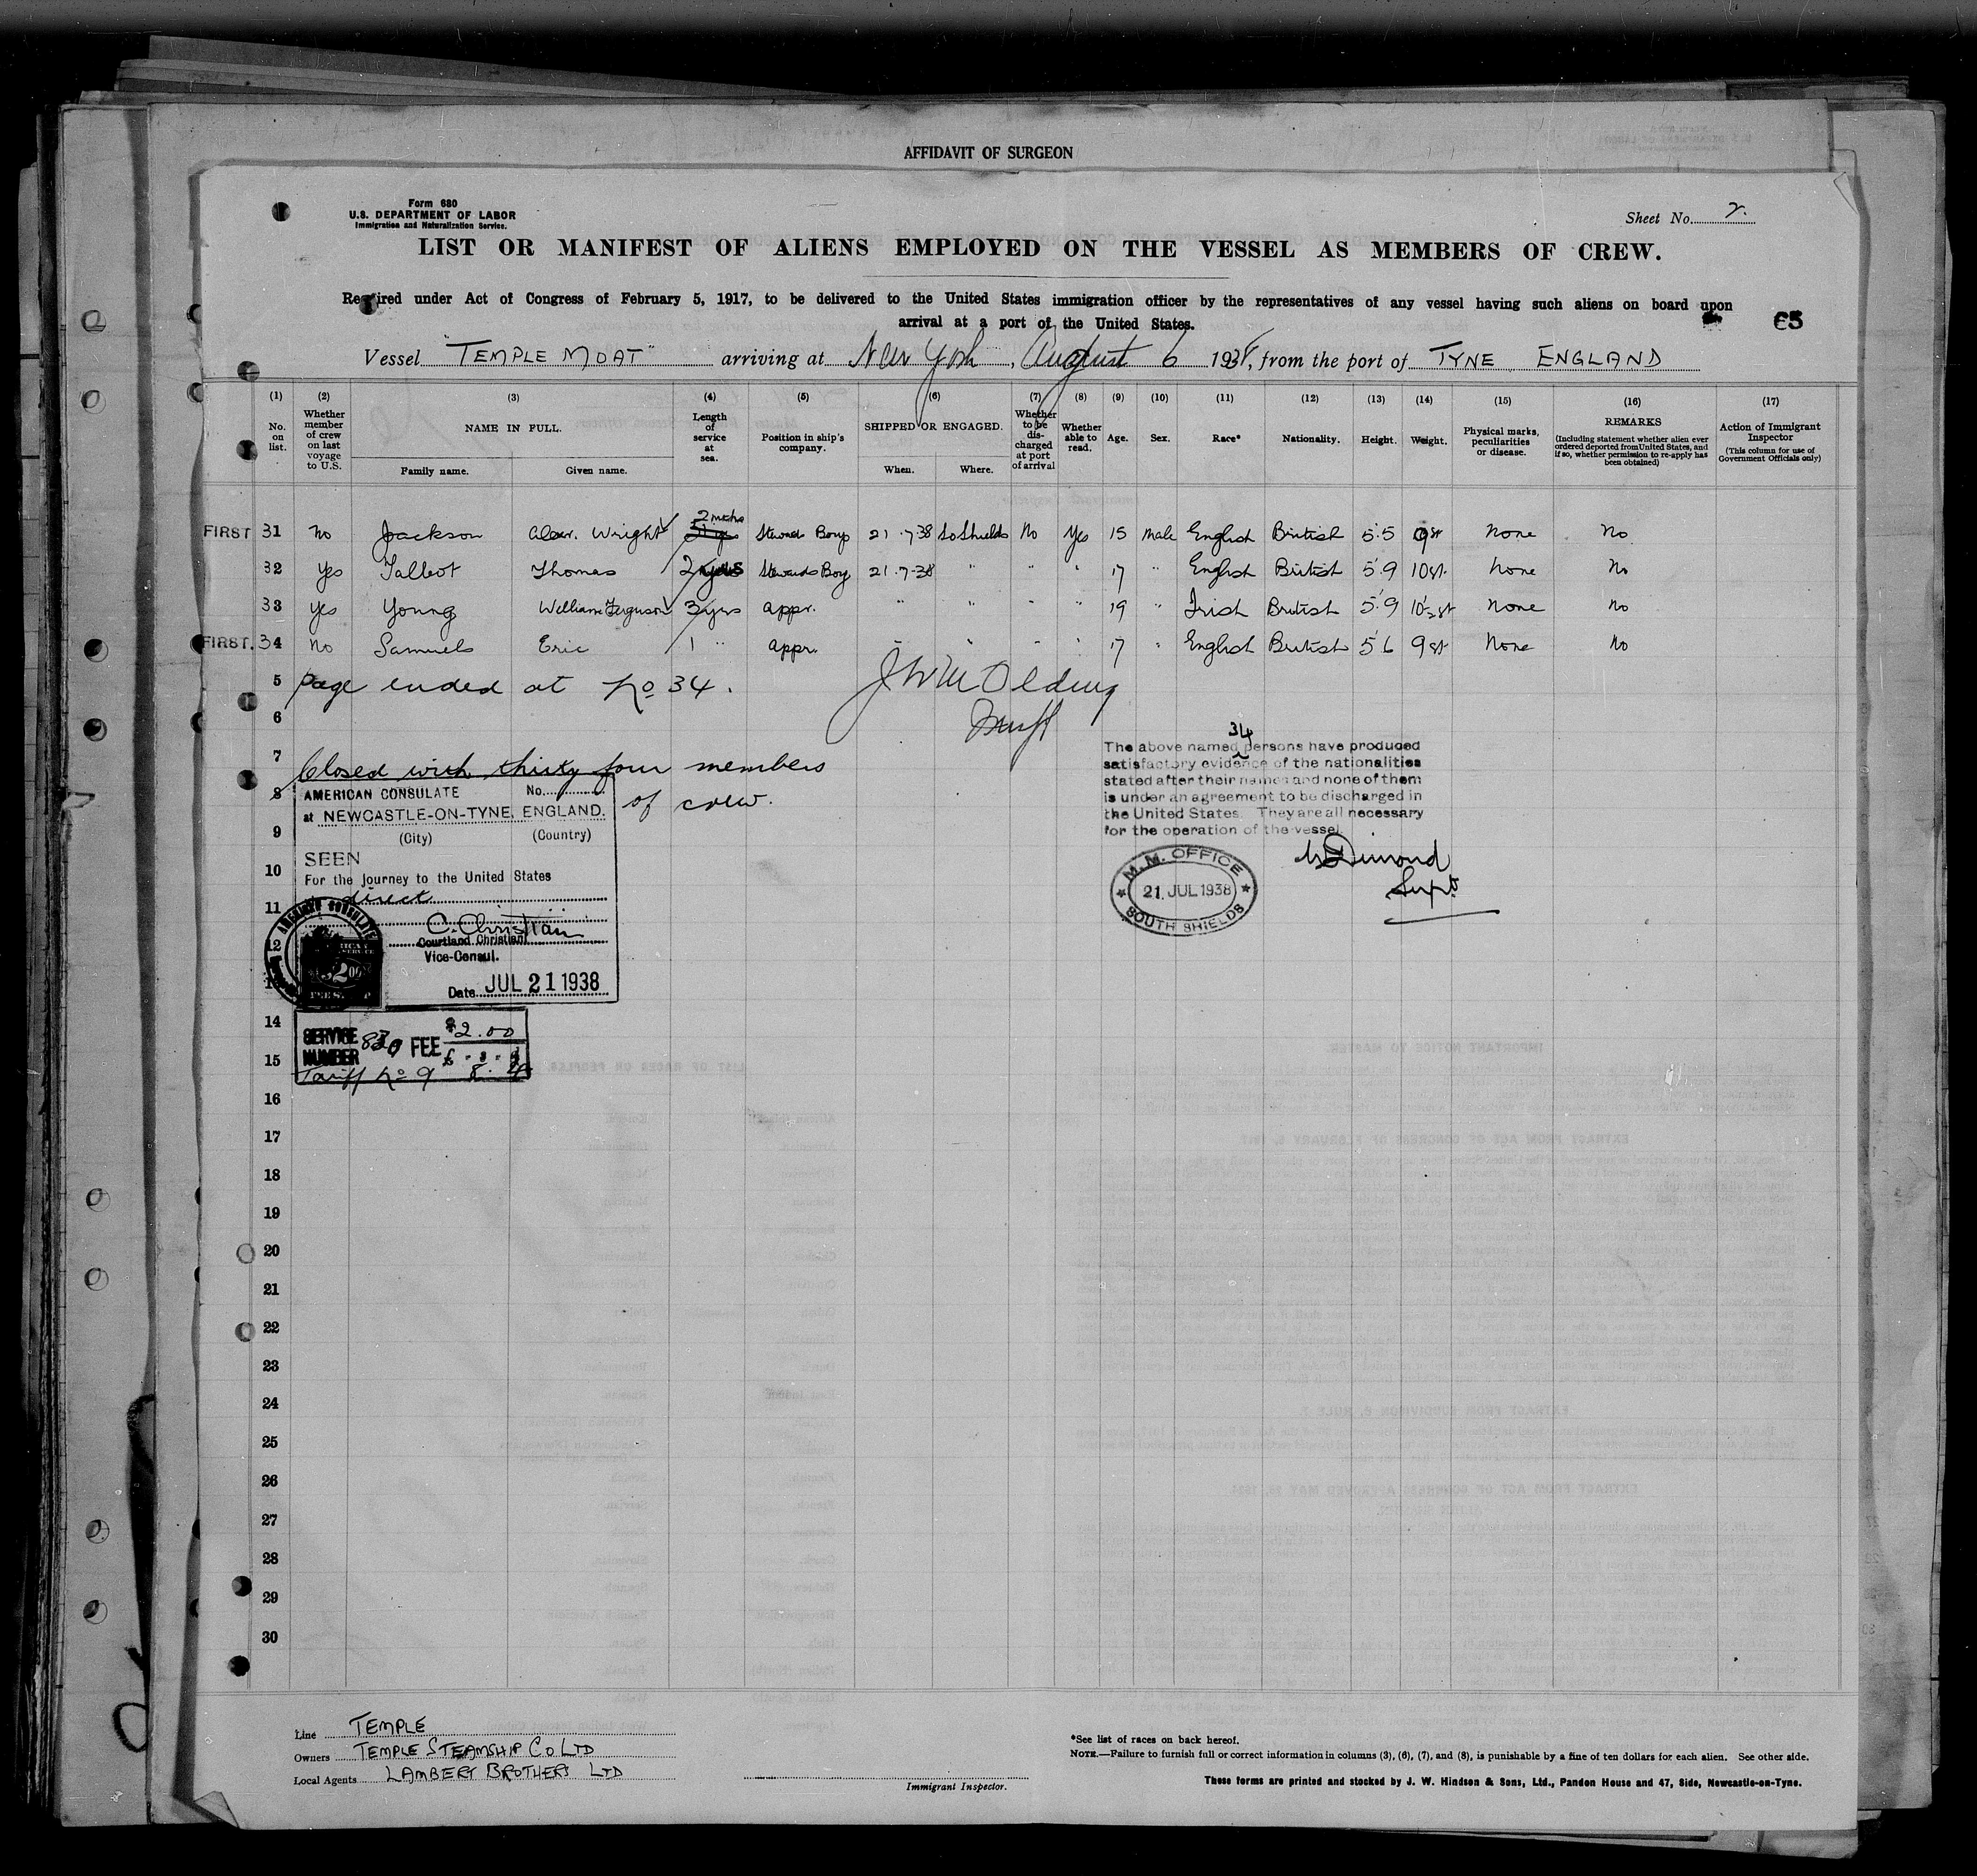 AFFIDAVIT OF SURGEON
Form 680
U.S. DEPARTMENT OF LABOR
Immigration and Naturalization Service.
Sheet No. 2.
LIST OR MANIFEST OF ALIENS EMPLOYED ON THE VESSEL AS MEMBERS OF CREW.
Required under Act of Congress of February 5, 1917, to be delivered to the United States immigration officer by the representatives of any vessel having such aliens on board upon
arrival at a port of the United States.
65
Vessel "TEMPLE MOAT" arriving at New York, August 6 1938, from the port of TYNE ENGLAND
(1) (2) (3) (4) (5) (6) (7) (8) (9) (10) (11) (12) (13) (14) (15) (16) (17)
No. on list.
Whether member of crew on last voyage to U.S.
NAME IN FULL.
Family name. Given name.
Length of service at sea.
Position in ship's company.
SHIPPED OR ENGAGED.
When. Where.
Whether to be discharged at port of arrival
Whether able to read.
Age.
Sex.
Race*
Nationality.
Height.
Weight.
Physical marks, peculiarities or disease.
REMARKS
(Including statement whether alien ever ordered deported from United States, and if so, whether permission to re-apply has been obtained)
Action of Immigrant Inspector
(This column for use of Government Officials only)
FIRST 31 No Jackson Alexr. Wright 2 mths Stewards Boy 21.7.38 So Shields No Yes 15 Male English British 5'5 9st None No
32 Yes Talbot Thomas 2 Stewards Boy 21.7.38 " " " 17 " English British 5'9 10st. None No
33 Yes Young William Ferguson 3yrs appr. " " " " 19 " Irish British 5'9 10½st None No
FIRST. 34 No Samuels Eric 1 " appr. " " " " 17 " English British 5'6 9st None No
5 Page ended at No 34.
6
7 Closed with thirty four members
of crew.
34
The above named persons have produced
satisfactory evidence of the nationalities
stated after their names and none of them
is under an agreement to be discharged in
the United States. They are all necessary
for the operation of the vessel.
Supt
M.M. OFFICE
21 JUL 1938
SOUTH SHIELDS
8
AMERICAN CONSULATE No.
at NEWCASTLE-ON-TYNE, ENGLAND.
(City) (Country)
9
SEEN
10
For the journey to the United States
direct
11
C. Christian
Courtland Christian
Vice-Consul.
12
Date JUL 21 1938
AMERICAN CONSULATE
14
SERVICE NUMBER 830 FEE $2.00
15
Tariff No 9
16
17
18
19
20
21
22
23
24
25
26
27
28
29
30
Line TEMPLE
Owners TEMPLE STEAMSHIP CO LTD
Local Agents LAMBERT BROTHERS LTD
Immigrant Inspector.
*See list of races on back hereof.
NOTE.—Failure to furnish full or correct information in columns (3), (6), (7), and (8), is punishable by a fine of ten dollars for each alien. See other side.
These forms are printed and stocked by J. W. Hindson & Sons, Ltd., Pandon House and 47, Side, Newcastle-on-Tyne.